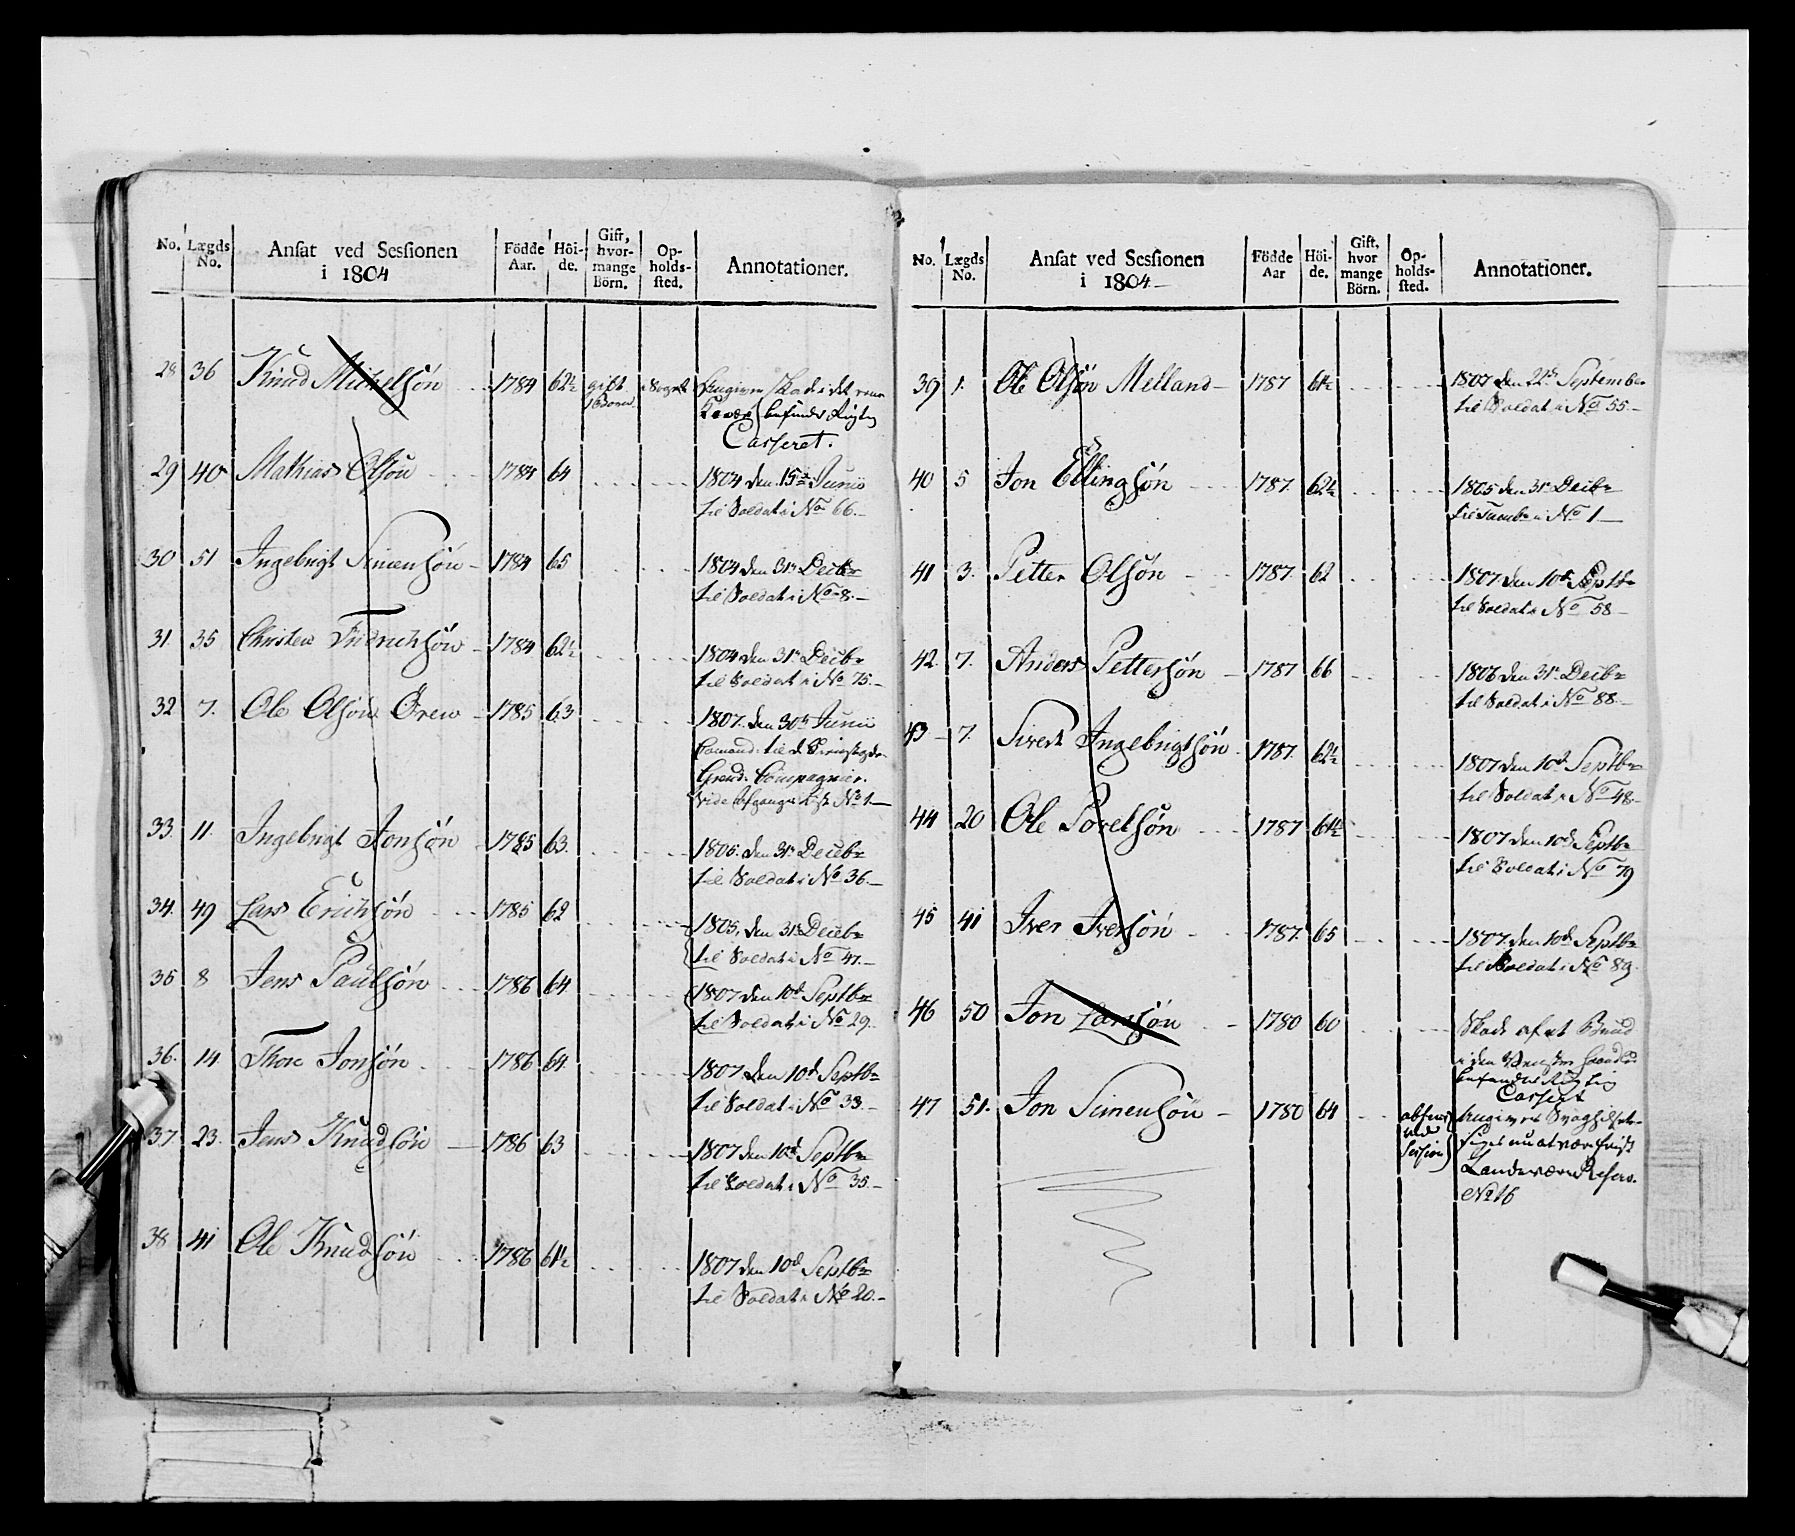 No. Lægds No. Ansat ved Sessionen i 1804 Födde Aar. Höi-de. Gift, hvor-mange Börn. Op-holds-sted. Annotationer.
28 36 Knud Michelsön 1784 62½ gift
Casseret.
29 40 Mathias Olsön 1784 64 1804 den 15de Junii
til Soldat i No 66.
30 51 Ingebrigt Simensön 1784 65 1804 den 31te Decbr
til Soldat i No 8.
31. 35 Christen Fridrichsön 1784 62½ 1804 den 31te Decbr
til Soldat i No 75.
32 7. Ole Olsön Ören 1785 63 1807. den 30te Junii
Grend. Compagnie.
vide Afgangs L. No 1
33. 11. Ingebrigt Jonsön 1785 63. 1805. den 31te Decbr
til Soldat i No 36.
34. 49 Lars Erichsön 1785 62 1805. den 31te Decbr
til Soldat i No 47.
35 8 Jens Paulsön 1786 64 1807 den 10d Septbr
til Soldat i No 29.
36. 14 Thore Jonsön 1786 64. 1807. den 10d Septbr
til Soldat i No 33.
37. 23. Jens Knudsön 1786 63 1807 den 10d Septbr
til Soldat i No 35.
38 41 Ole Knudsön 1786 61½ 1807 den 10d Septbr
til Soldat i No 20.
No. Lægds No. Ansat ved Sessionen i 1804 Födde Aar Höi-de. Gift, hvor mange Börn. Op-holds-sted. Annotationer.
39 1. Ole Olsön Melland 1787 61½ 1807 den 22de September
til Soldat i No 55.
40 5 Jon Ellingsön 1787. 62½ 1805 den 31te Decbr
til Tambr i No 1
41 3. Petter Olsön 1787. 62 1807. den 10d Septbr
til Soldat i No 58
42. 7. Anders Pettersön 1787. 66 1806 den 31te Decbr
til Soldat i No 88.
43 7. Sivert Ingebrigtsön 1787. 62½ 1807 den 10d Septbr
til Soldat i No 48.
44 20 Ole Sivetsön 1787 61½ 1807 den 10d Septbr
til Soldat i No 79
45 41 Iver Iversön 1787. 65 1807. den 10d Septbr
til Soldat i No 89.
46 50 Jon Larssön 1780 60 Skade af et Brud
befandtes Rigtig
Casseret
47 51. Jon Simensön 1780 64 ved Session
Landeværn Reserv.
No 16